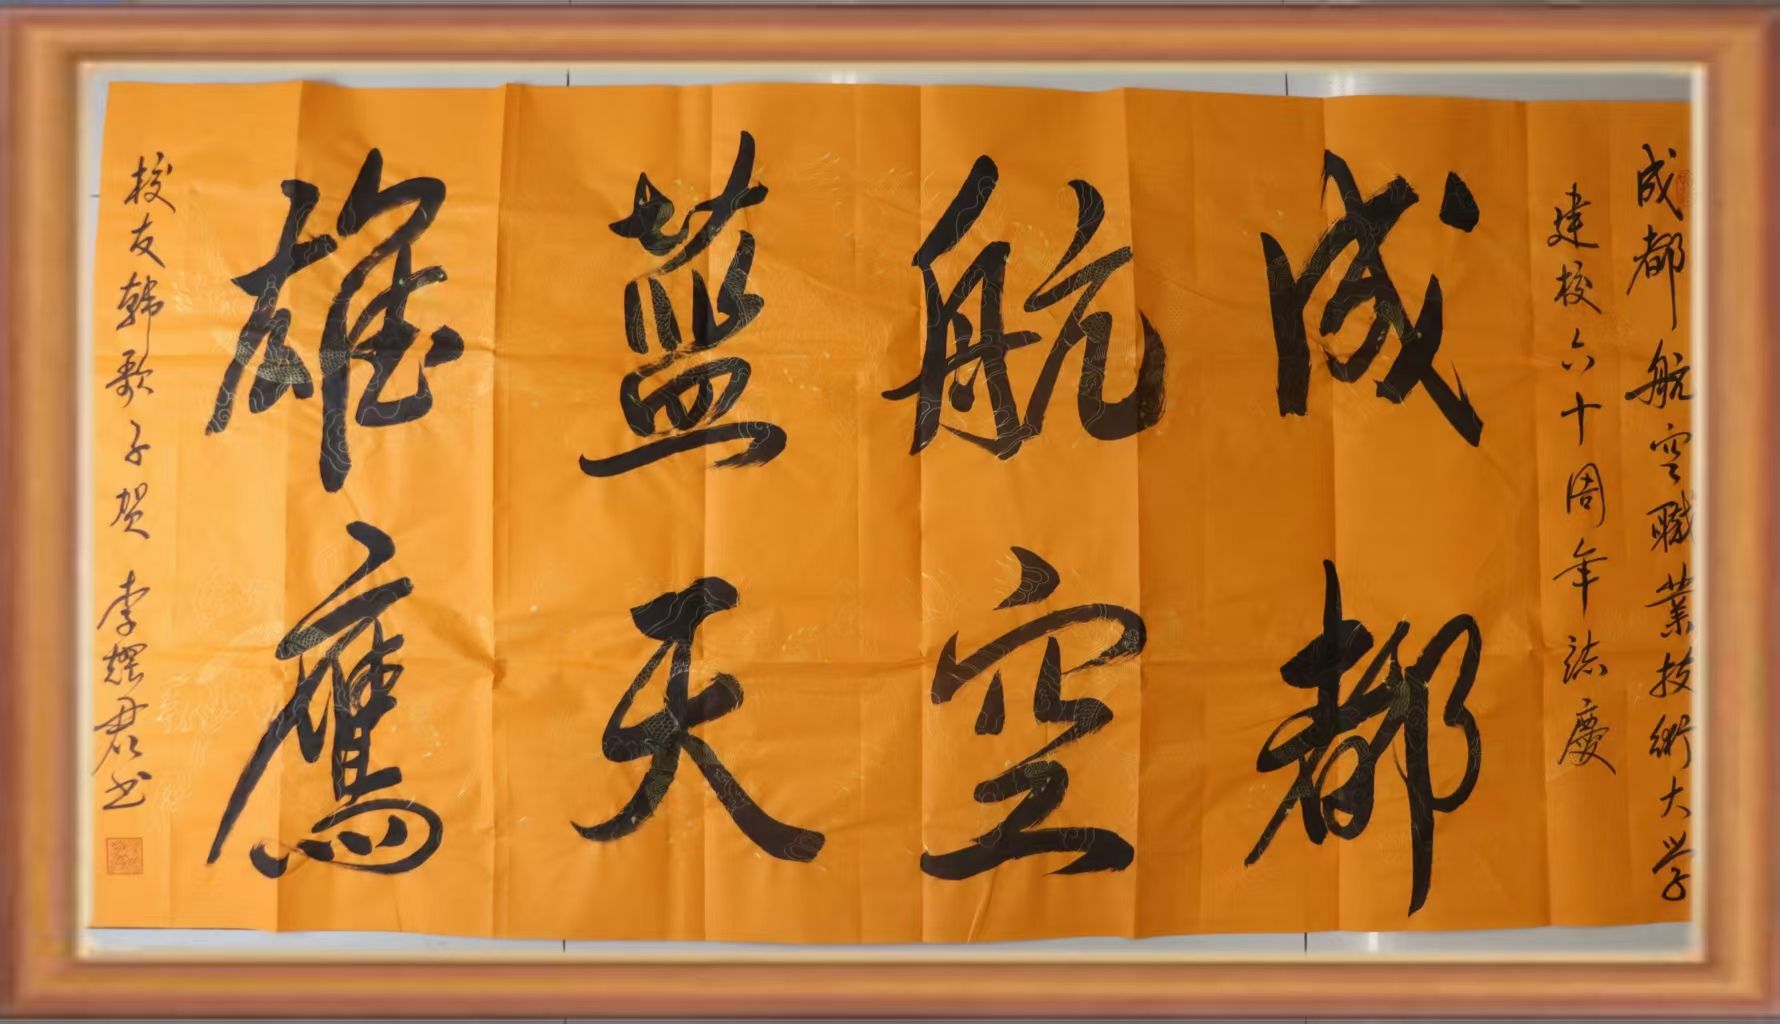 成都航空職業技術大学
建校六十周年誌慶
成都
航空
蓝天
雄鷹
校友韩歌子贺 李耀君书